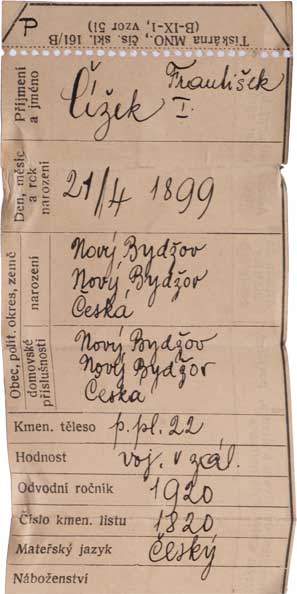 P
Tiskárna MNO., čís. skl. 161/B
(B-IX-1, vzor 51)
Příjmení a jméno
Čížek František
I.
Den, měsíc a rok narození
21/4 1899
Obec, polit. okres, země
narození
Nový Bydžov
Nový Bydžov
Česká
domovské příslušnosti
Nový Bydžov
Nový Bydžov
Česká
Kmen. těleso p.pl. 22
Hodnost voj. v zál.
Odvodní ročník 1920
Číslo kmen. listu 1820
Mateřský jazyk český
Náboženství